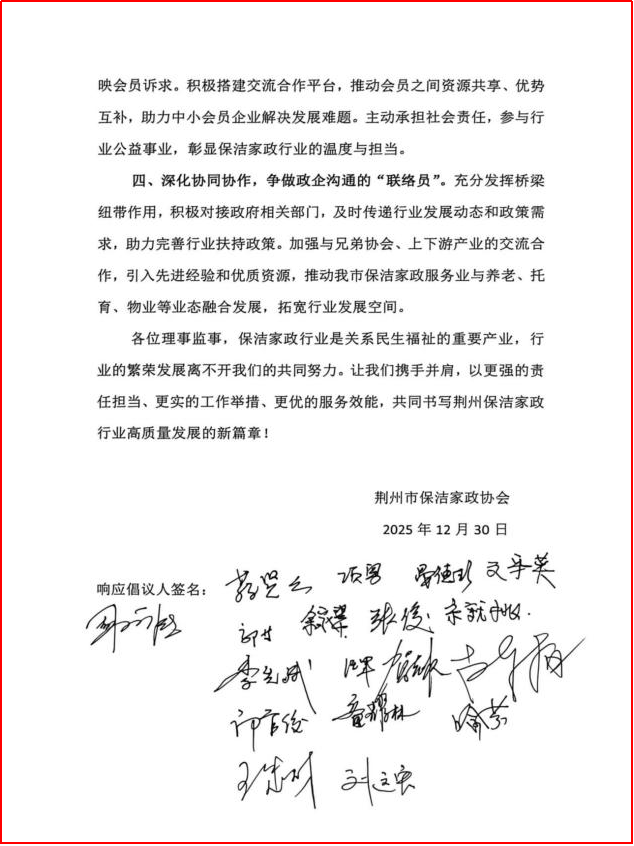 映会员诉求。积极搭建交流合作平台，推动会员之间资源共享、优势
互补，助力中小会员企业解决发展难题。主动承担社会责任，参与行
业公益事业，彰显保洁家政行业的温度与担当。
四、深化协同协作，争做政企沟通的“联络员”。充分发挥桥梁
纽带作用，积极对接政府相关部门，及时传递行业发展动态和政策需
求，助力完善行业扶持政策。加强与兄弟协会、上下游产业的交流合
作，引入先进经验和优质资源，推动我市保洁家政服务业与养老、托
育、物业等业态融合发展，拓宽行业发展空间。
各位理事监事，保洁家政行业是关系民生福祉的重要产业，行
业的繁荣发展离不开我们的共同努力。让我们携手并肩，以更强的责
任担当、更实的工作举措、更优的服务效能，共同书写荆州保洁家政
行业高质量发展的新篇章！
荆州市保洁家政协会
2025 年 12 月 30 日
响应倡议人签名：
张俊